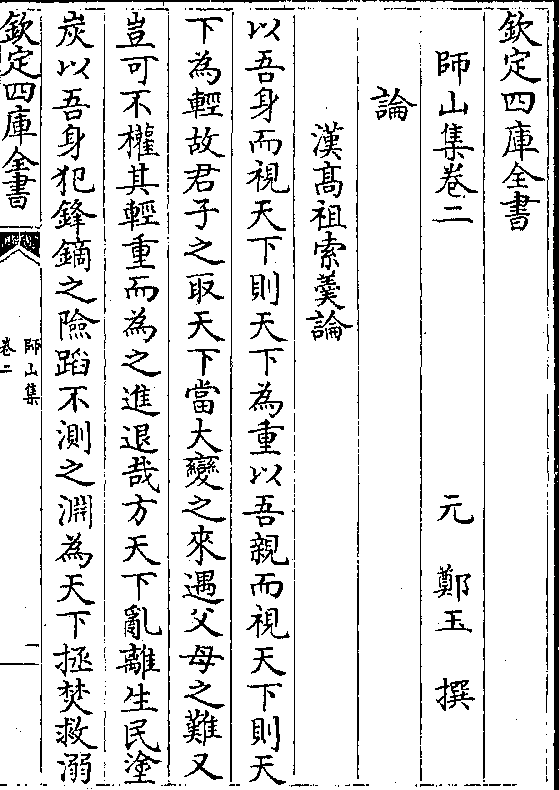 欽定四庫全書
師山集卷二
元 鄭玉 撰
論
漢髙祖索羮論
以吾身而視天下則天下為重以吾親而視天下則天
下為輕故君子之取天下當大變之來遇父母之難又
豈可不權其輕重而為之進退哉方天下亂離生民塗
炭以吾身犯鋒鏑之險蹈不測之淵為天下拯焚救溺
欽定四庫全書
師山集
卷二
一